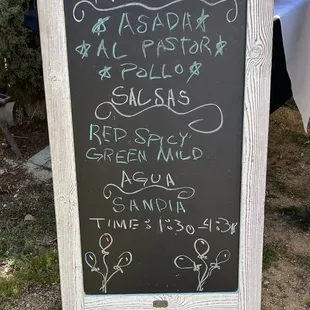 ASADA
AL PASTOR
POLLO
SALSAS
RED SPICY
GREEN MILD
AGUA
SANDIA
TIME: 1:30-4:3